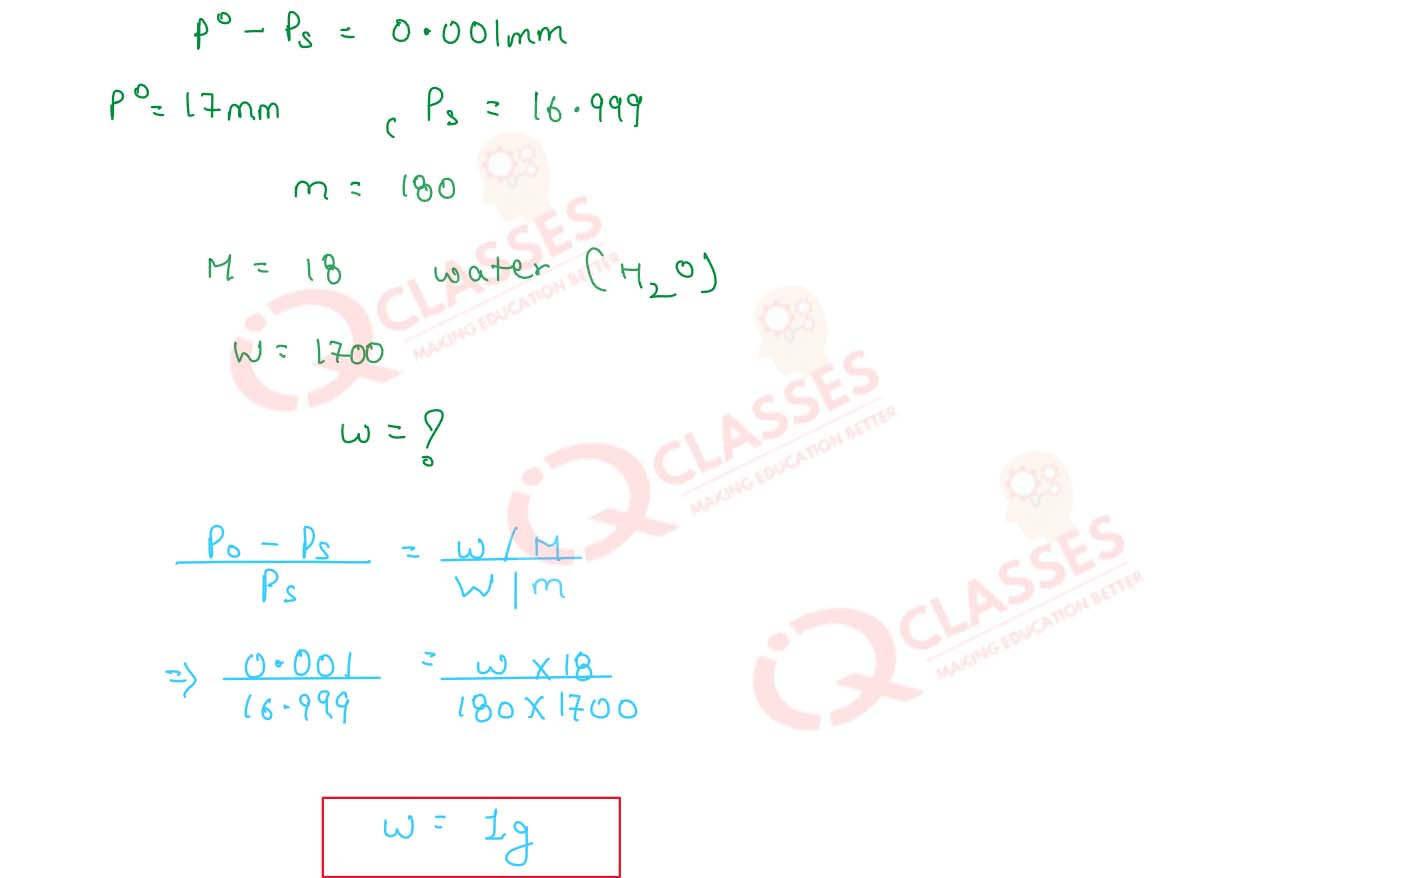 P⁰ - Ps = 0.001mm
P⁰ = 17mm , Ps = 16.999
m = 180
M = 18 water (H₂O)
W = 1700
w = ?
P₀ - Ps / Ps = w/M / W/m
⇒ 0.001 / 16.999 = w x 18 / 180 x 1700
w = 1g
iQ CLASSES
MAKING EDUCATION BETTER
iQ CLASSES
MAKING EDUCATION BETTER
iQ CLASSES
MAKING EDUCATION BETTER